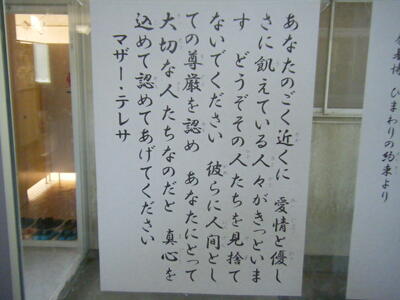 あなたのごく近くに　愛情と優し
さに飢えている人々がきっといま
す　どうぞその人たちを見捨て
ないでください　彼らに人間とし
ての尊厳を認め　あなたにとって
大切な人たちなのだと　真心を
込めて認めてあげてください
マザー・テレサ
ひまわりの約束より